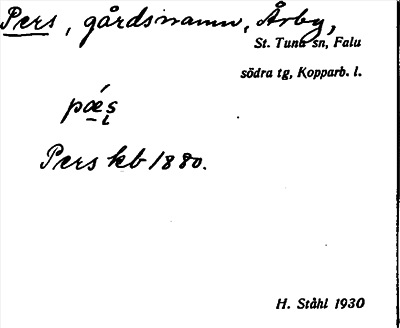 Pers, gårdsnamn, Årby,
St. Tuna sn, Falu
södra tg, Kopparb. l.
pǽs
Pers kb 1880.
H. Ståhl 1930